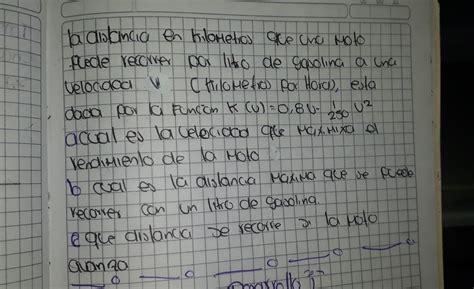 la distancia en kilometros que una Moto
Puede recorrer por litro de gasolina a una
velocidad v (kilometros por Hora), esta
dada por la Funcion K(v)=0,8v-1/250 v²
a cual es la velocidad que Maximixa el
rendimiento de la Moto
b cual es la distancia Maxima que se Puede
recorrer con un litro de gasolina.
e que distancia se recorre si la Moto
avanza
Desarrollo